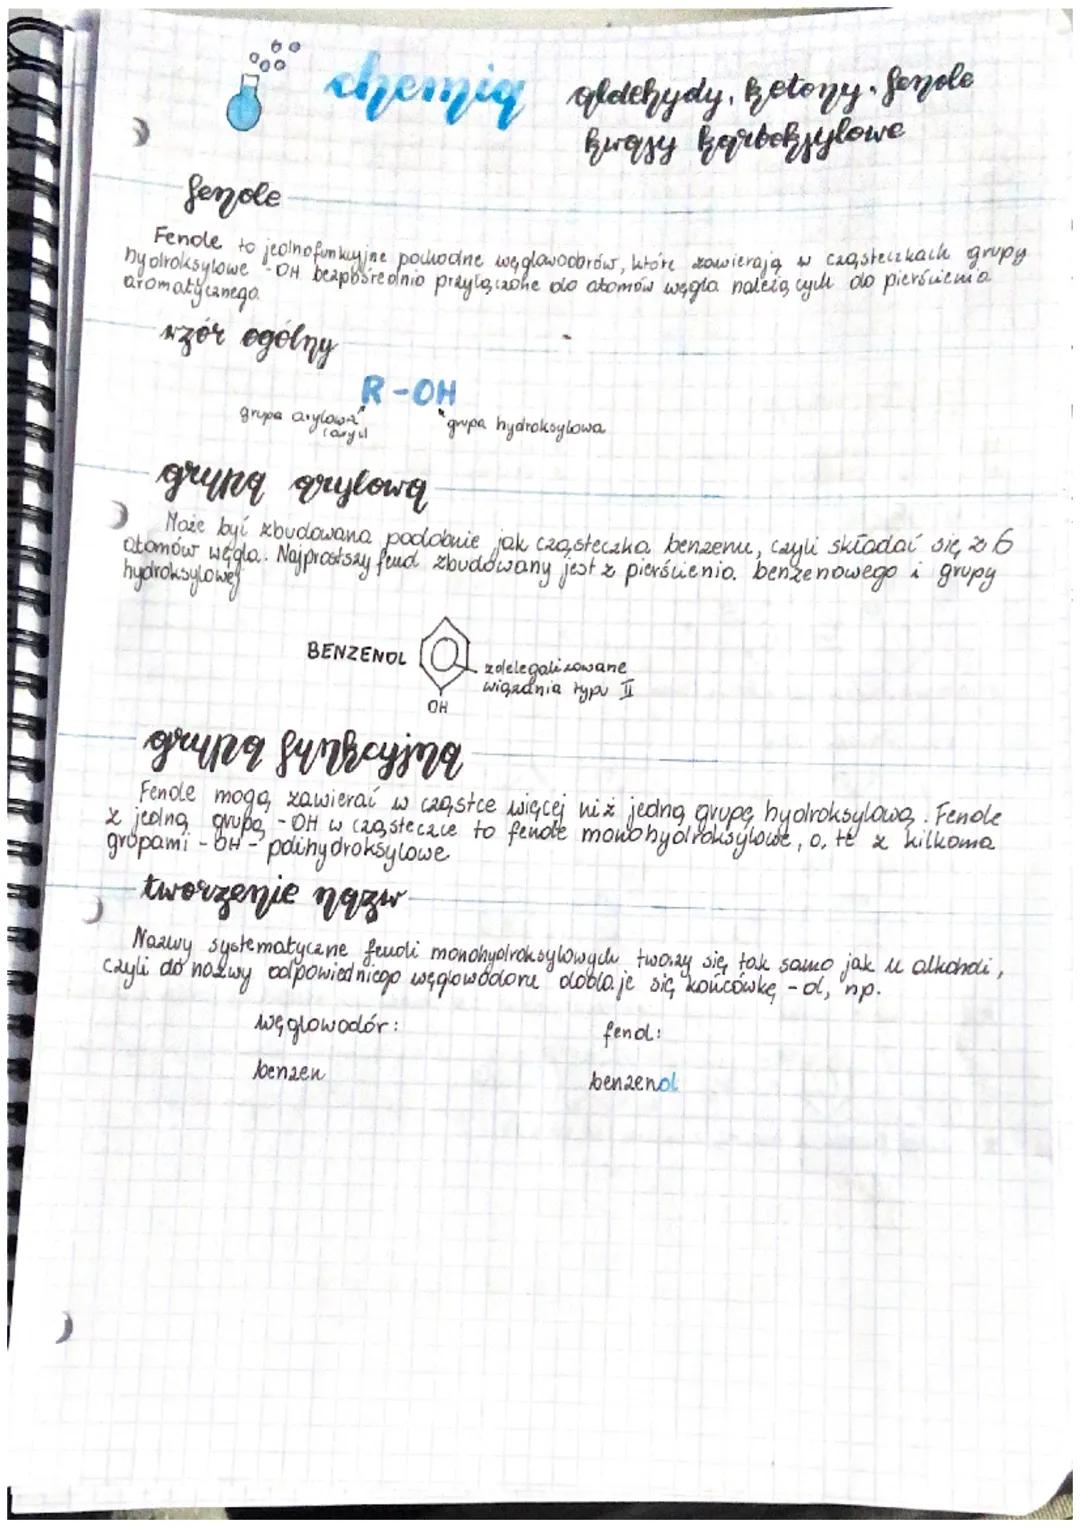 chemia
aldehydy, ketony, fenole
kwasy karboksylowe
fenole
Fenole to jednofunkcyjne pochodne węglowodorów, które zawierają w cząsteczkach grupy
hydroksylowe -OH bezpośrednio przyłączone do atomów węgla należących do pierścienia
aromatycznego
wzór ogólny
R-OH
grupa arylowa
(aryl)
grupa hydroksylowa
grupa arylowa
Może być zbudowana podobnie jak cząsteczka benzenu, czyli składać się z 6
atomów węgla. Najprostszy fenol zbudowany jest z pierścienia benzenowego i grupy
hydroksylowej
BENZENOL
zdelegalizowane
wiązania typu II
OH
grupa funkcyjna
Fenole mogą zawierać w cząstce więcej niż jedną grupę hydroksylową. Fenole
z jedną grupą -OH w cząsteczce to fenole monohydroksylowe, a te z kilkoma
grupami -OH - polihydroksylowe
tworzenie nazw
Nazwy systematyczne fenoli monohydroksylowych tworzy się tak samo jak u alkoholi,
czyli do nazwy odpowiedniego węglowodoru dodaje się końcówkę -ol, np.
węglowodór:
fenol:
benzen
benzenol